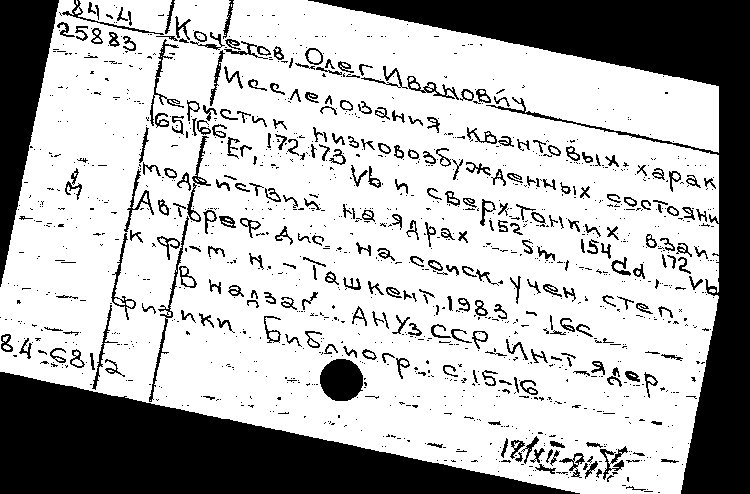 84-4
25883
Кочетов, Олег Иванович
Исследования квантовых харак
теристик низковозбужденных состояни
165,166 Er, 172,173 Yb и сверхтонких взаи-
модействий на ядрах 152 Sm, 154 Gd, 172 Yb
Автореф. дис. на соиск. учен. степ.
к.ф.-м.н. - Ташкент, 1983. - 16с.
В надзаг.: АН УзССР. Ин-т ядер.
физики. Библиогр.: с.15-16
84-6812
18/XII-84